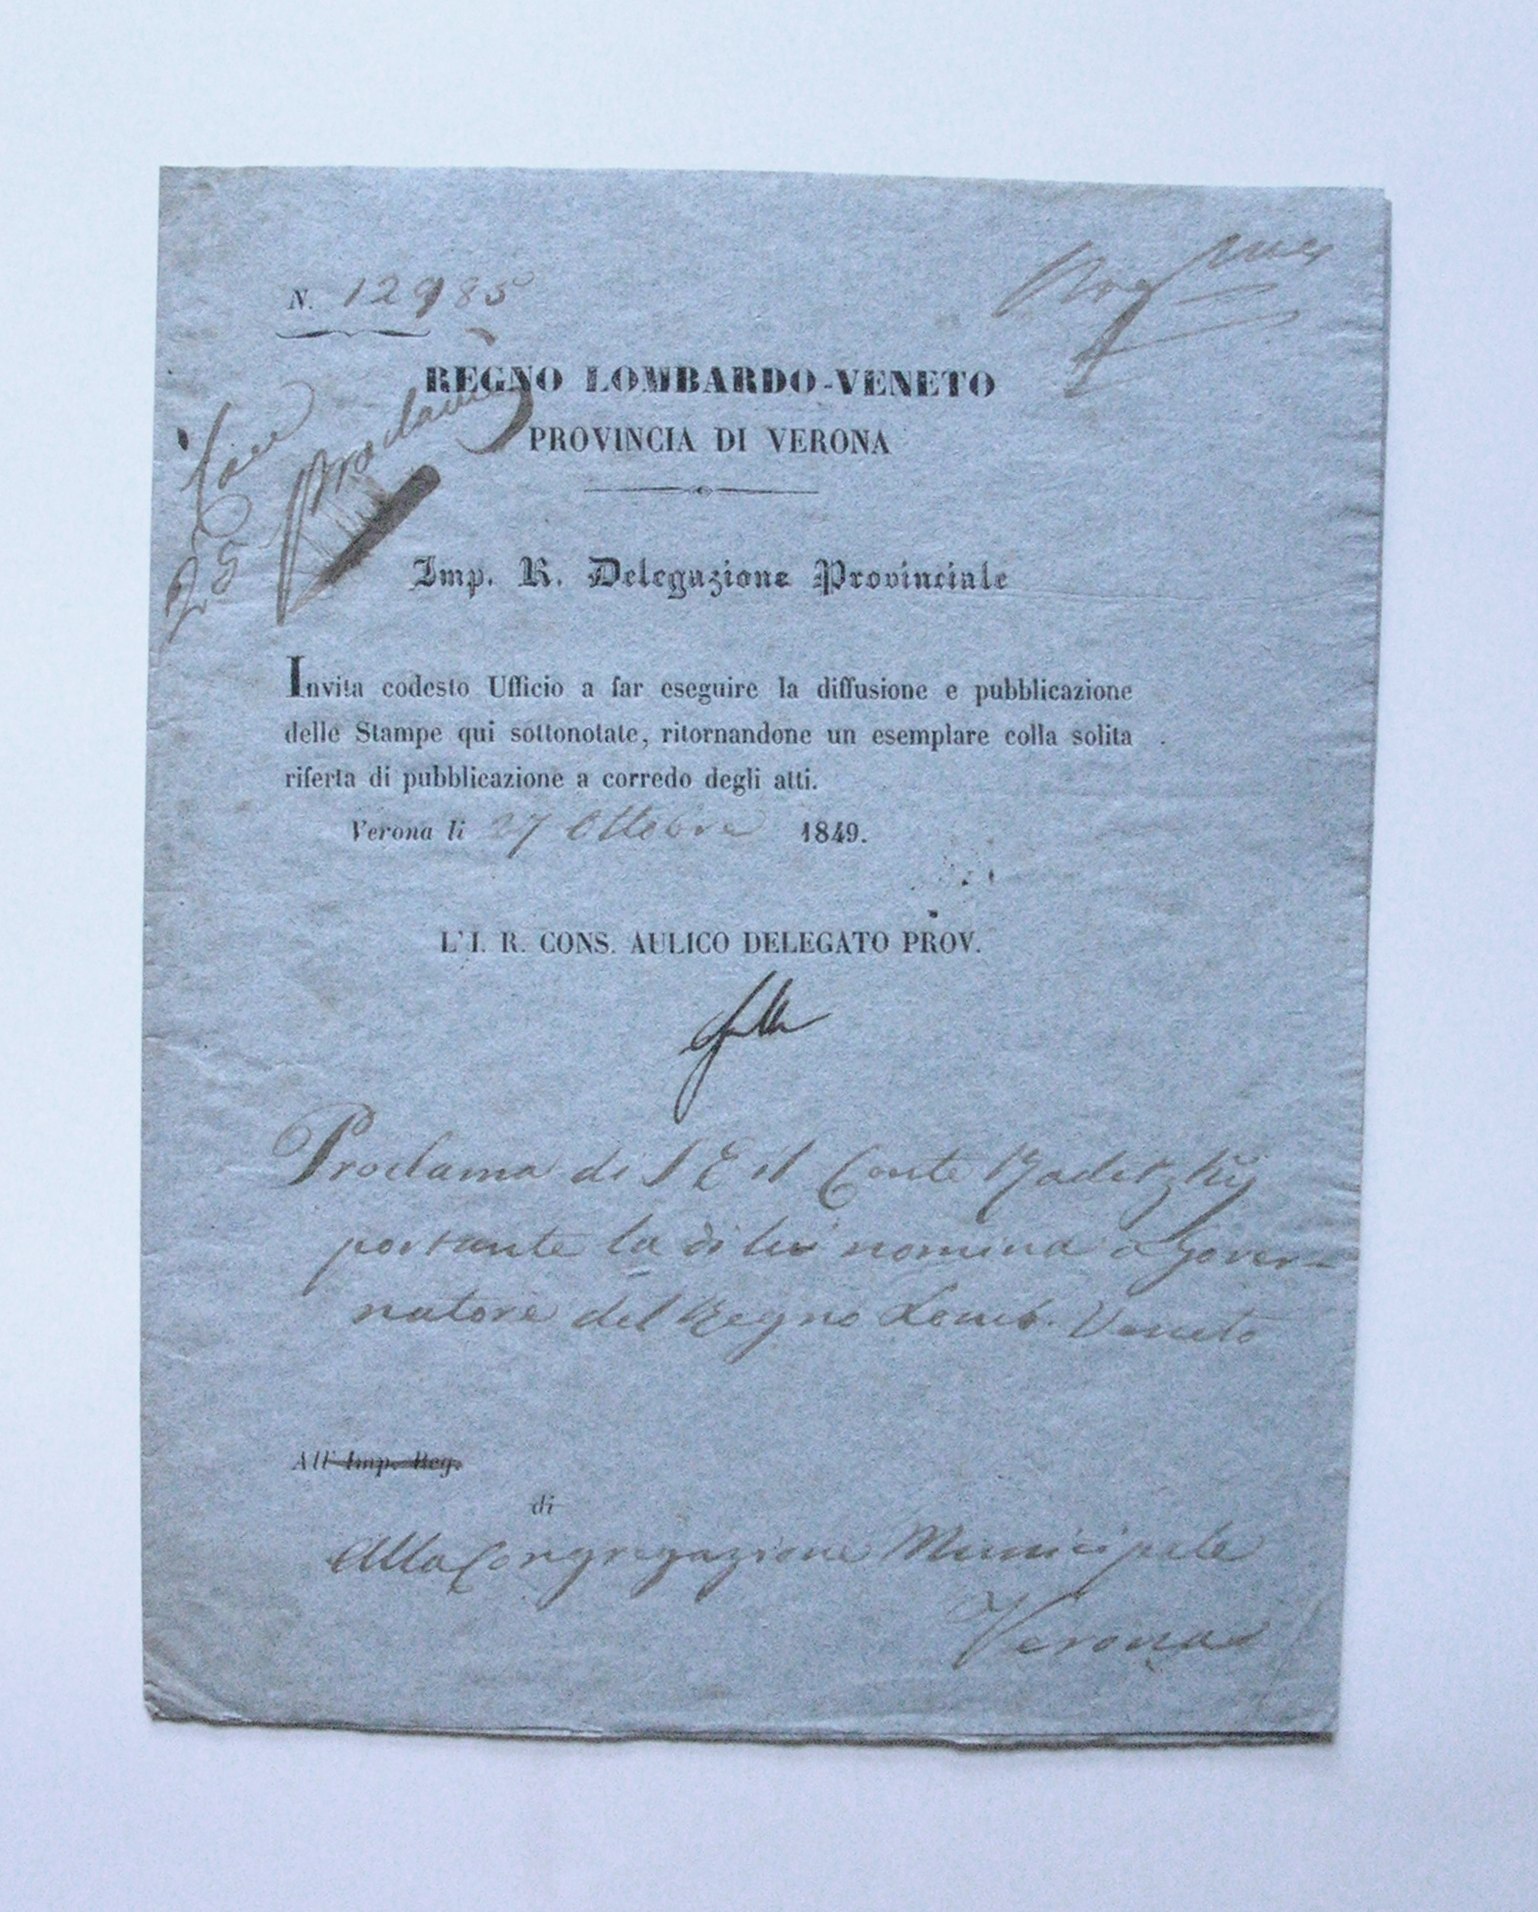 N. 12985
REGNO LOMBARDO-VENETO
PROVINCIA DI VERONA
25 Proclami
Imp. R. Delegazione Provinciale
Invita codesto Ufficio a far eseguire la diffusione e pubblicazione
delle Stampe qui sottonotate, ritornandone un esemplare colla solita
riferta di pubblicazione a corredo degli atti.
Verona li 27 Ottobre 1849.
L'I. R. CONS. AULICO DELEGATO PROV.
Proclama di S E il Conte Radetzky
portante la di lui nomina a Gover-
natore del Regno Lomb. Veneto
All' Imp. Reg.
di
Alla Congregazione Municipale
Verona